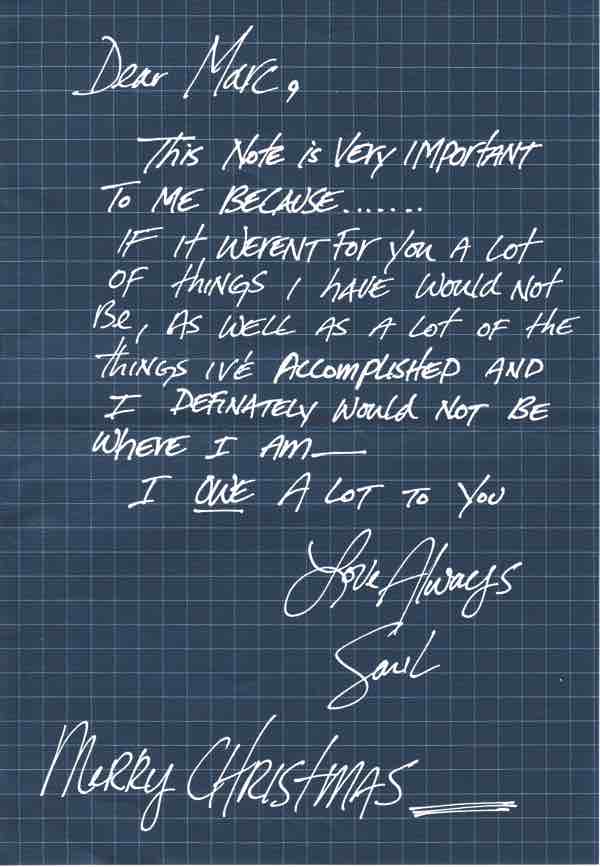 Dear Marc,
This Note is Very IMPortANT
To ME BECAUSE.......
IF it WERENT For you A Lot
OF tHiNGS I HAVE Would Not
Be, AS WELL AS A Lot OF the
tHiNGS IVE ACCOMPLISHED AND
I DEFINATELY Would NOT BE
WHERE I AM—
I OWE A LOT TO YOU
Love Always
Saul
MERRY CHRISTMAS